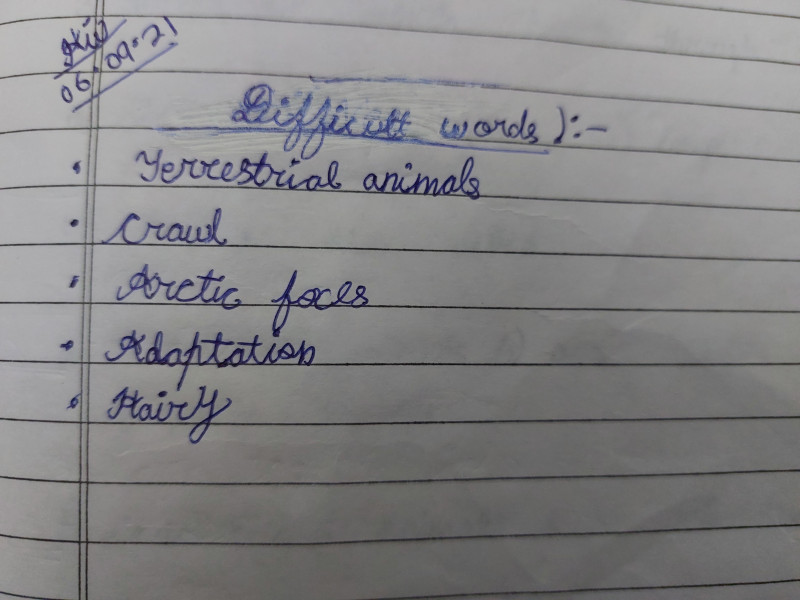 06.09.21
Difficult words):-
• Terrestrial animals
• Crawl
• Arctic foxes
• Adaptation
• Hairy